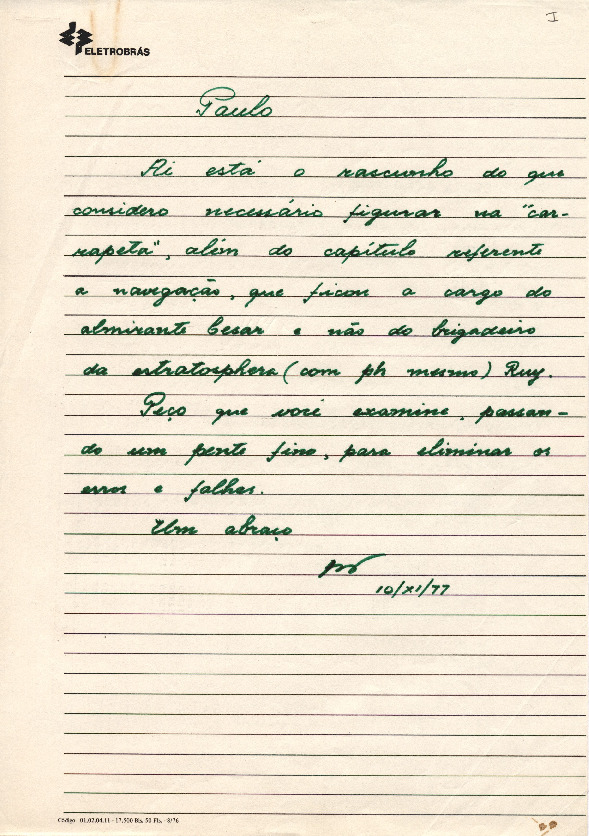 I
ELETROBRÁS
Paulo
Aí está o rascunho do que
considero necessário figurar na "car-
rapeta", além do capítulo referente
a navegação, que ficou a cargo do
almirante Cesar e não do brigadeiro
da estratosphera (com ph mesmo) Ruy.
Peço que você examine, passan-
do um pente fino, para eliminar os
erros e falhas.
Um abraço
10/XI/77
Código 01.02.04.11 - 17.500 Bls. 50 Fls. - 8/76